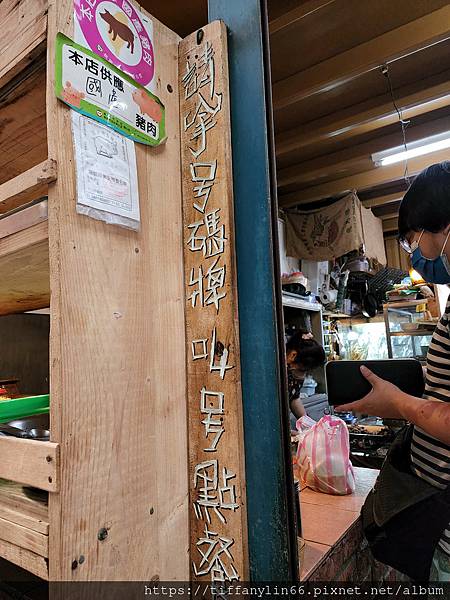 本店供應
國產
豬肉
請拿号碼牌叫号點餐
https://tiffanylin66.pixnet.net/album